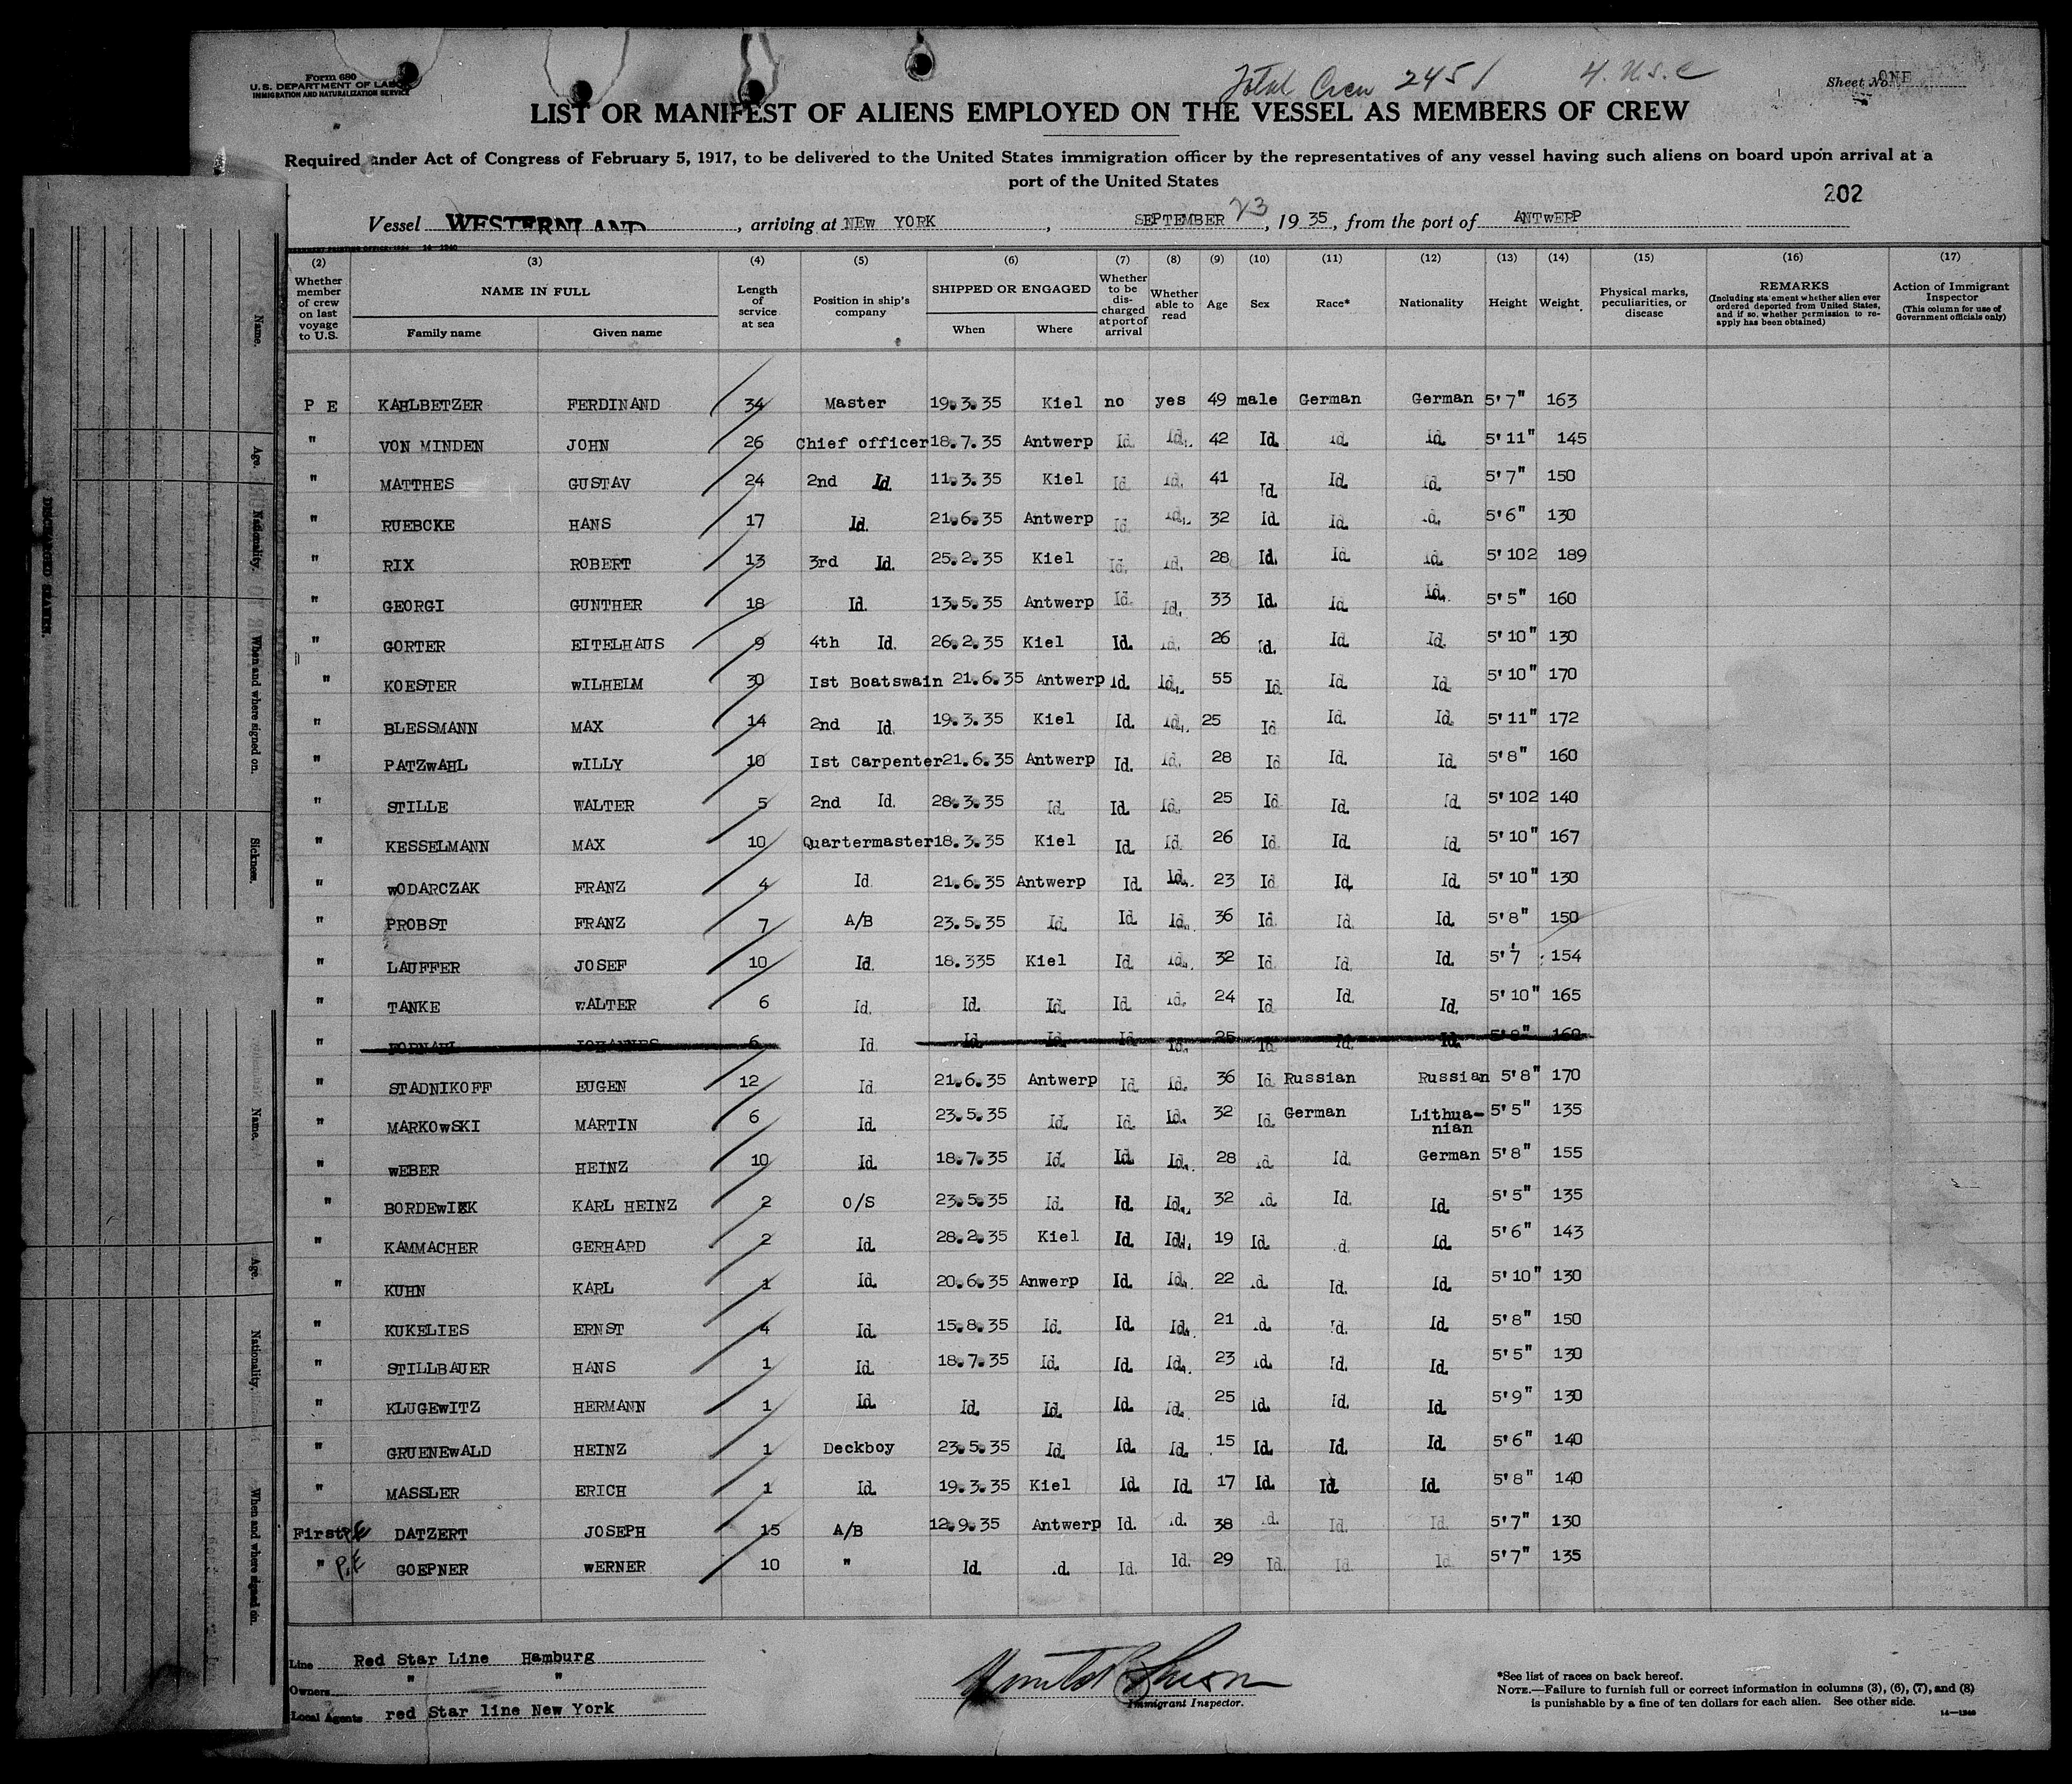 Form 680
U.S. DEPARTMENT OF LABOR
IMMIGRATION AND NATURALIZATION SERVICE
Total Crew 245 /
4. U.S.C
Sheet No. ONE
LIST OR MANIFEST OF ALIENS EMPLOYED ON THE VESSEL AS MEMBERS OF CREW
Required under Act of Congress of February 5, 1917, to be delivered to the United States immigration officer by the representatives of any vessel having such aliens on board upon arrival at a
port of the United States
202
Vessel WESTERNLAND, arriving at NEW YORK, SEPTEMBER 23, 19 35, from the port of ANTWERP
(2) (3) (4) (5) (6) (7) (8) (9) (10) (11) (12) (13) (14) (15) (16) (17)
Whether member of crew on last voyage to U.S. NAME IN FULL Family name Given name Length of service at sea Position in ship's company SHIPPED OR ENGAGED When Where Whether to be discharged at port of arrival Whether able to read Age Sex Race* Nationality Height Weight Physical marks, peculiarities, or disease REMARKS (Including statement whether alien ever ordered deported from United States, and if so, whether permission to re-apply has been obtained) Action of Immigrant Inspector (This column for use of Government officials only)
P E KAHLBETZER FERDINAND 34 Master 19.3.35 Kiel no yes 49 male German German 5'7" 163
" VON MINDEN JOHN 26 Chief officer 18.7.35 Antwerp Id. Id. 42 Id. Id. Id. 5'11" 145
" MATTHES GUSTAV 24 2nd Id. 11.3.35 Kiel Id. Id. 41 Id. Id. Id. 5'7" 150
" RUEBCKE HANS 17 Id. 21.6.35 Antwerp Id. Id. 32 Id. Id. Id. 5'6" 130
" RIX ROBERT 13 3rd Id. 25.2.35 Kiel Id. Id. 28 Id. Id. Id. 5'102 189
" GEORGI GUNTHER 18 Id. 13.5.35 Antwerp Id. Id. 33 Id. Id. Id. 5'5" 160
" GORTER EITELHAUS 9 4th Id. 26.2.35 Kiel Id. Id. 26 Id. Id. Id. 5'10" 130
" KOESTER WILHELM 30 Ist Boatswain 21.6.35 Antwerp Id. Id. 55 Id. Id. Id. 5'10" 170
" BLESSMANN MAX 14 2nd Id. 19.3.35 Kiel Id. Id. 25 Id Id. Id. 5'11" 172
" PATZWAHL WILLY 10 Ist Carpenter 21.6.35 Antwerp Id. Id. 28 Id Id. Id. 5'8" 160
" STILLE WALTER 5 2nd Id. 28.3.35 Id. Id. Id. 25 Id Id. Id. 5'102 140
" KESSELMANN MAX 10 Quartermaster 18.3.35 Kiel Id. Id. 26 Id Id. Id. 5'10" 167
" WODARCZAK FRANZ 4 Id 21.6.35 Antwerp Id. Id. 23 Id Id. Id. 5'10" 130
" PROBST FRANZ 7 A/B 23.5.35 Id. Id. Id. 36 Id. Id. Id. 5'8" 150
" LAUFFER JOSEF 10 Id. 18.335 Kiel Id. Id. 32 Id. Id. Id. 5'7 154
" TANKE WALTER 6 Id. Id. Id. Id. Id. 24 Id Id. Id. 5'10" 165
" FORNAHL JOHANNES 6 Id. Id. Id. Id. Id. 25 Id Id. Id. 5'8" 160
" STADNIKOFF EUGEN 12 Id. 21.6.35 Antwerp Id. Id. 36 Id Russian Russian 5'8" 170
" MARKOWSKI MARTIN 6 Id. 23.5.35 Id. Id. Id. 32 Id. German Lithua-
nian 5'5" 135
" WEBER HEINZ 10 Id. 18.7.35 Id. Id. Id. 28 Id. Id. German 5'8" 155
" BORDEWIEK KARL HEINZ 2 O/S 23.5.35 Id. Id. Id. 32 Id. Id. Id. 5'5" 135
" KAMMACHER GERHARD 2 Id. 28.2.35 Kiel Id. Id. 19 Id. d. Id. 5'6" 143
" KUHN KARL 1 Id. 20.6.35 Anwerp Id. Id. 22 Id. Id. Id. 5'10" 130
" KUKELIES ERNST 4 Id. 15.8.35 Id. Id. Id. 21 Id. Id. Id. 5'8" 150
" STILLBAUER HANS 1 Id. 18.7.35 Id. Id. Id. 23 Id. Id. Id. 5'5" 130
" KLUGEWITZ HERMANN 1 Id. Id. Id. Id. Id. 25 Id. Id. Id. 5'9" 130
" GRUENEWALD HEINZ 1 Deckboy 23.5.35 Id. Id. Id. 15 Id. Id. Id. 5'6" 140
" MASSLER ERICH 1 Id. 19.3.35 Kiel Id. Id. 17 Id. Id. Id. 5'8" 140
First P.E DATZERT JOSEPH 15 A/B 12.9.35 Antwerp Id. Id. 38 Id. Id. Id. 5'7" 130
" P.E GOEPNER WERNER 10 " Id. .d. Id. Id. 29 Id. Id. Id 5'7" 135
Line Red Star Line Hamburg
Owners " "
Local Agents red Star line New York
Immigrant Inspector.
*See list of races on back hereof.
NOTE.—Failure to furnish full or correct information in columns (3), (6), (7), and (8)
is punishable by a fine of ten dollars for each alien. See other side.
14—1240
DISCHARGED SEAMEN.
Name.
Age.
Nationality.
When and where signed on.
Sickness.
Name.
Age.
Nationality.
When and where signed on.